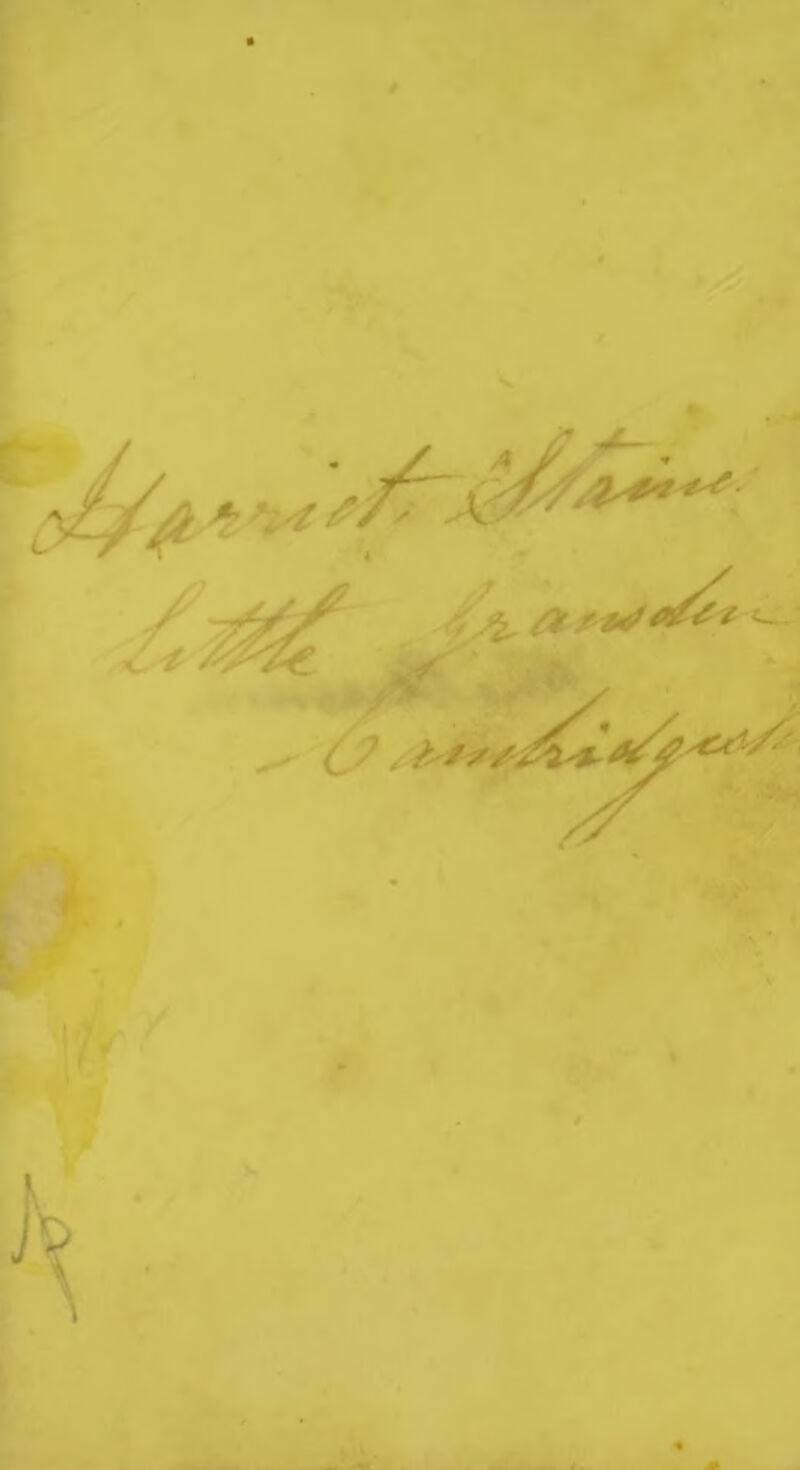 Harriet. Staine
Little Gransden
Cambridgesh